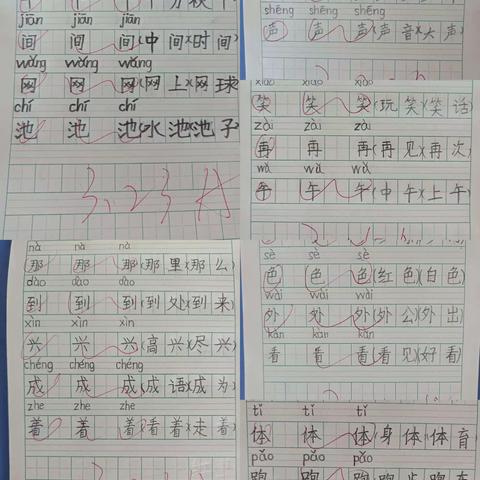 jiān jiān jiān
间 间 间(中间)(时间)
wǎng wǎng wǎng
网 网 网(网上)(网球)
chí chí chí
池 池 池(水池)(池子)
3.23
shēng shēng shēng
声 声 声(声音)(大声)
xiào xiào xiào
笑 笑 笑(玩笑)(笑话)
zài zài zài
再 再 再(再见)(再次)
wǔ wǔ wǔ
午 午 午(中午)(上午)
nà nà nà
那 那 那(那里)(那么)
dào dào dào
到 到 到(到处)(到来)
xìn xìn xìn
兴 兴 兴(高兴)(尽兴)
chéng chéng chéng
成 成 成(成语)(成为)
zhe zhe zhe
着 着 着(看着)(走着)
sè sè sè
色 色 色(红色)(白色)
wài wài wài
外 外 外(外公)(外出)
kàn kàn kàn
看 看 看(看见)(好看)
tǐ tǐ tǐ
体 体 体(身体)(体育)
pǎo pǎo pǎo
跑 跑 跑(跑步)